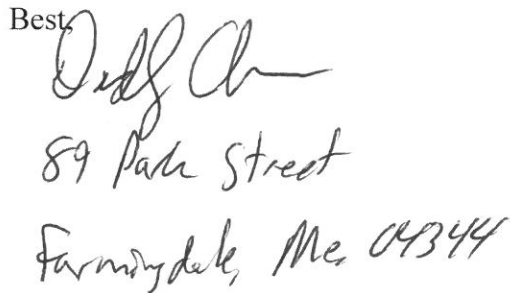 Best,
89 Park Street
Farmingdale, Me, 04344